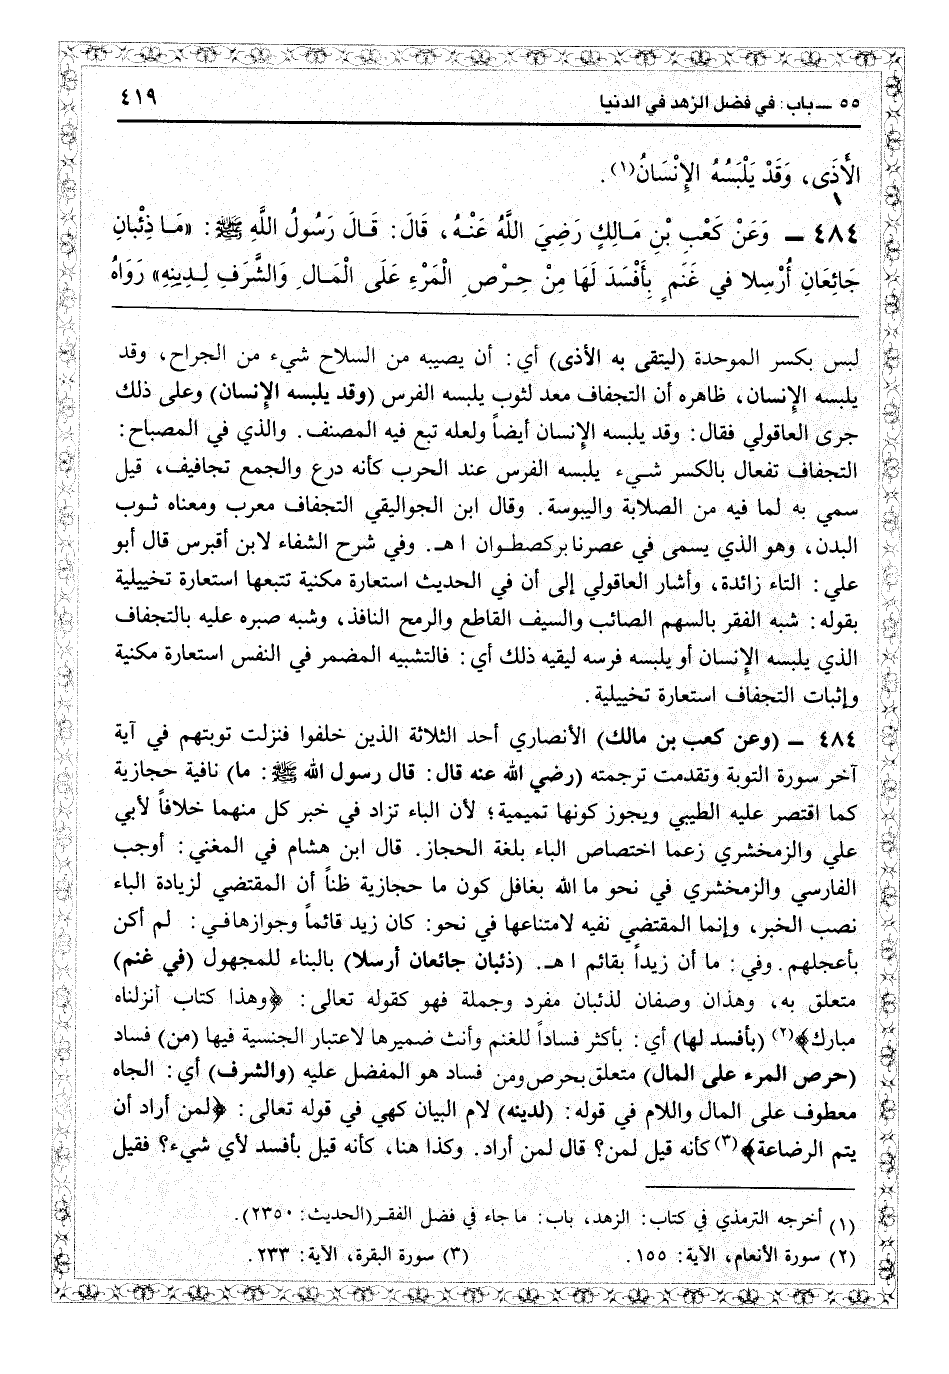 ٥٥ ــ باب: في فضل الزهد في الدنيا ٤١٩
الأَذَى، وَقَدْ يَلْبَسُهُ الإِنْسَانُ(١).
١
٤٨٤ ــ وَعَنْ كَعْبِ بْنِ مَـالِكٍ رَضِيَ اللَّهُ عَنْـهُ، قَالَ: قَـالَ رَسُولُ اللَّهِ ﷺ: «مَـا ذِئْبانِ
جَائِعَانِ أُرْسِلا في غَنَمٍ بِأَفْسَدَ لَهَا مِنْ حِـرْصِ الْمَرْءِ عَلَى الْمَالِ وَالشَّرَفِ لِـدِينِهِ» رَوَاهُ
لبس بكسر الموحدة (ليتقى به الأذى) أي: أن يصيبه من السلاح شيء من الجراح، وقد
يلبسه الإنسان، ظاهره أن التجفاف معد لثوب يلبسه الفرس (وقد يلبسه الإنسان) وعلى ذلك
جرى العاقولي فقال: وقد يلبسه الإنسان أيضاً ولعله تبع فيه المصنف. والذي في المصباح:
التجفاف تفعال بالكسر شـيء يلبسه الفرس عند الحرب كأنه درع والجمع تجافيف، قيل
سمي به لما فيه من الصلابة واليبوسة. وقال ابن الجواليقي التجفاف معرب ومعناه ثـوب
البدن، وهو الذي يسمى في عصرنا بركصطـوان ا هـ. وفي شرح الشفاء لابن أقبرس قال أبو
علي: التاء زائدة، وأشار العاقولي إلى أن في الحديث استعارة مكنية تتبعها استعارة تخييلية
بقوله: شبه الفقر بالسهم الصائب والسيف القاطع والرمح النافذ، وشبه صبره عليه بالتجفاف
الذي يلبسه الإنسان أو يلبسه فرسه ليقيه ذلك أي: فالتشبيه المضمر في النفس استعارة مكنية
وإثبات التجفاف استعارة تخييلية.
٤٨٤ ــ (وعن كعب بن مالك) الأنصاري أحد الثلاثة الذين خلفوا فنزلت توبتهم في آية
آخر سورة التوبة وتقدمت ترجمته (رضي الله عنه قال: قال رسول الله ﷺ: ما) نافية حجازية
كما اقتصر عليه الطيبي ويجوز كونها تميمية؛ لأن الباء تزاد في خبر كل منهما خلافاً لأبي
علي والزمخشري زعما اختصاص الباء بلغة الحجاز. قال ابن هشام في المغني: أوجب
الفارسي والزمخشري في نحو ما الله بغافل كون ما حجازية ظناً أن المقتضي لزيادة الباء
نصب الخبر، وإنما المقتضي نفيه لامتناعها في نحو: كان زيد قائماً وجوازها في: لم أكن
بأعجلهم. وفي: ما أن زيداً بقائم ا هـ. (ذئبان جائعان أرسلا) بالبناء للمجهول (في غنم)
متعلق به، وهذان وصفان لذئبان مفرد وجملة فهو كقوله تعالى: ﴿وهذا كتاب أنزلناه
مبارك﴾(٢) (بأفسد لها) أي: بأكثر فساداً للغنم وأنث ضميرها لاعتبار الجنسية فيها (من) فساد
(حرص المرء على المال) متعلق بحرص ومن فساد هو المفضل عليه (والشرف) أي: الجاه
معطوف على المال واللام في قوله: (لدينه) لام البيان كهي في قوله تعالى: ﴿لمن أراد أن
يتم الرضاعة﴾(٣) كأنه قيل لمن؟ قال لمن أراد. وكذا هنا، كأنه قيل بأفسد لأي شيء؟ فقيل
(١) أخرجه الترمذي في كتاب: الزهد، باب: ما جاء في فضل الفقـر (الحديث: ٢٣٥٠).
(٢) سورة الأنعام، الآية: ١٥٥. (٣) سورة البقرة، الآية: ٢٣٣.